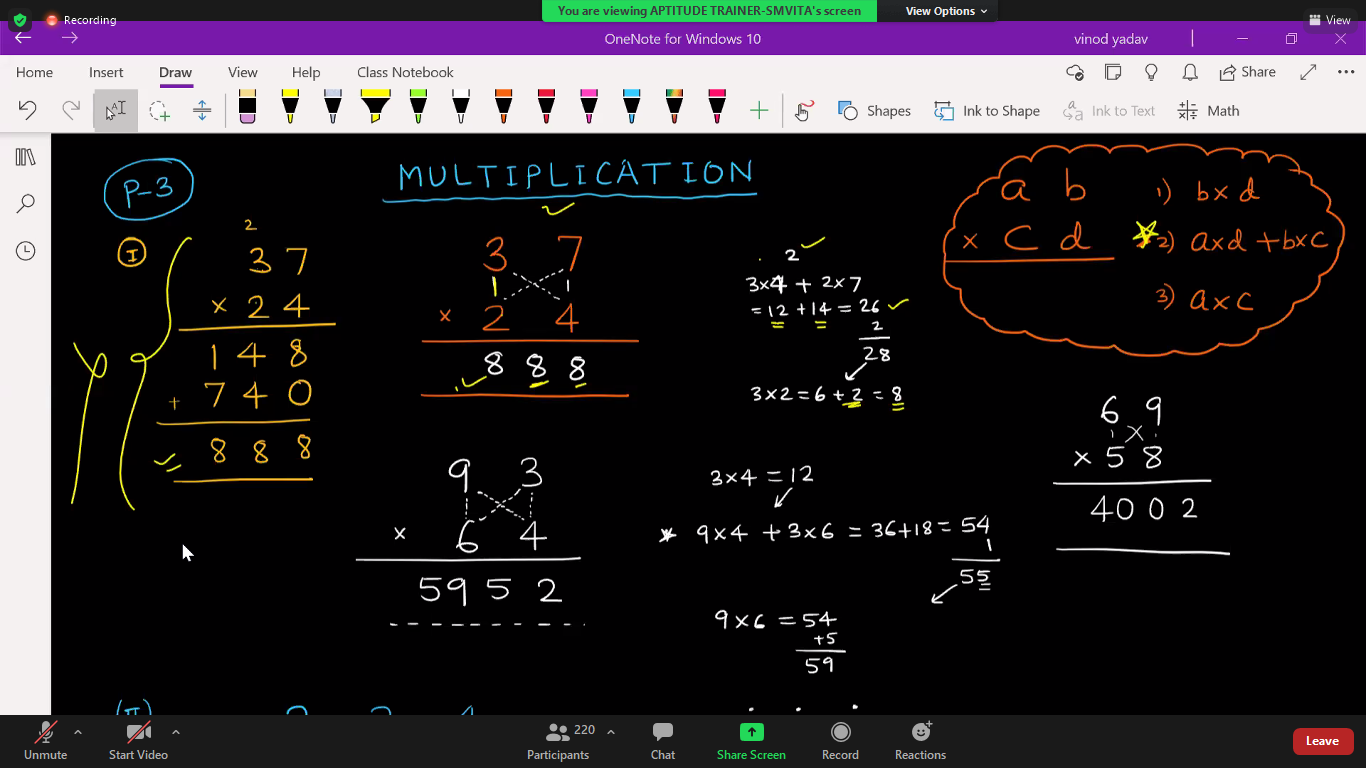 Recording
You are viewing APTITUDE TRAINER-SMVITA's screen
View Options
View
OneNote for Windows 10
vinod yadav
Home Insert Draw View Help Class Notebook
Share
Shapes
Ink to Shape
Ink to Text
Math
P-3
MULTIPLICATION
I
2
37
× 24
148
+ 740
888
3 7
1 1
× 2 4
8 8 8
2
3×4 + 2×7
= 12 + 14 = 26
2
28
3×2 = 6 + 2 = 8
a b
× c d
1) b×d
2) a×d + b×c
3) a×c
9 3
× 6 4
59 5 2
3×4 = 12
9×4 + 3×6 = 36+18 = 54
1
55
9×6 = 54
+5
59
6 9
× 5 8
40 0 2
(II)
Unmute
Start Video
Participants
220
Chat
Share Screen
Record
Reactions
Leave